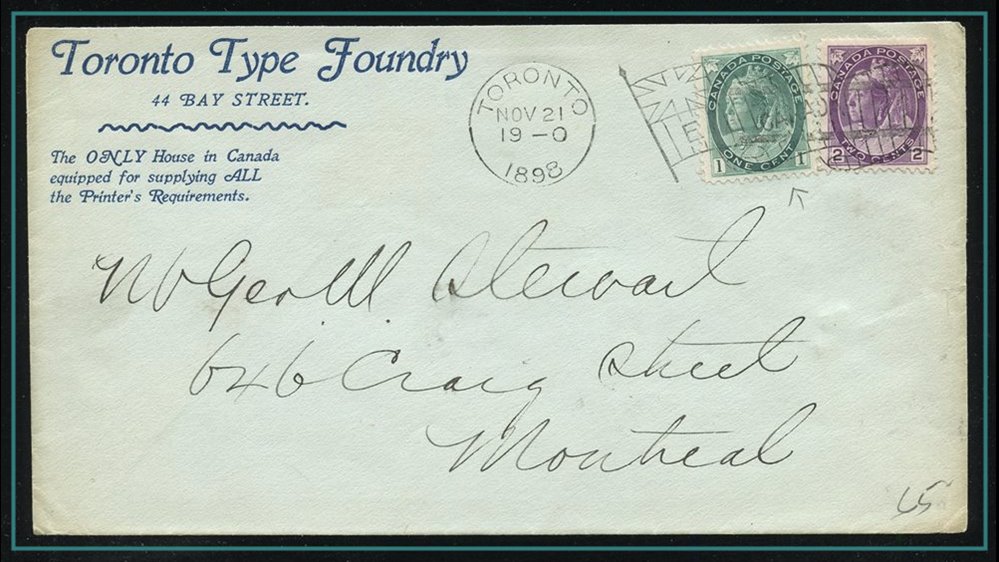 Toronto Type Foundry
44 BAY STREET.
The ONLY House in Canada
equipped for supplying ALL
the Printer's Requirements.
TORONTO
NOV 21
19-0
1898
CANADA POSTAGE
ONE CENT
1 1
CANADA POSTAGE
TWO CENTS
2 2
Stewart
646 Craig Street
Montreal
65